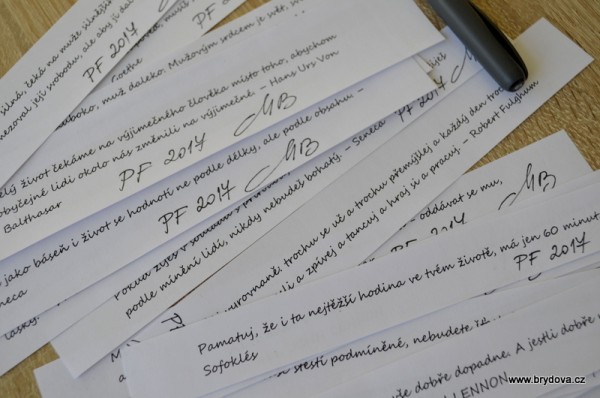 silná, čeká na muže silnějšího
mezoval její svobodu, ale aby jí dal
PF 2017
Goethe
muž daleko. Mužovým srdcem je svět, sv
život čekáme na výjimečného člověka místo toho, abychom
obyčejné lidi okolo nás změnili na výjimečné. – Hans Urs Von
Balthasar
PF 2017 MB
jako báseň i život se hodnotí ne podle délky, ale podle obsahu. –
neca
PF 2017 MB
podle mínění lidí, nikdy nebudeš bohatý. – Seneca
PF 2017
trochu se uč a trochu přemýšlej a každý den
a zpívej a tancuj a hraj si a pracuj. – Robert Fulghum
oddávat se mu,
PF 2017 MB
Pamatuj, že i ta nejtěžší hodina ve tvém životě, má jen 60 minut
Sofoklés
PF 2017
štěstí podmíněné, nebudete
dobře dopadne. A jestli dobře
LENNON
www.brydova.cz